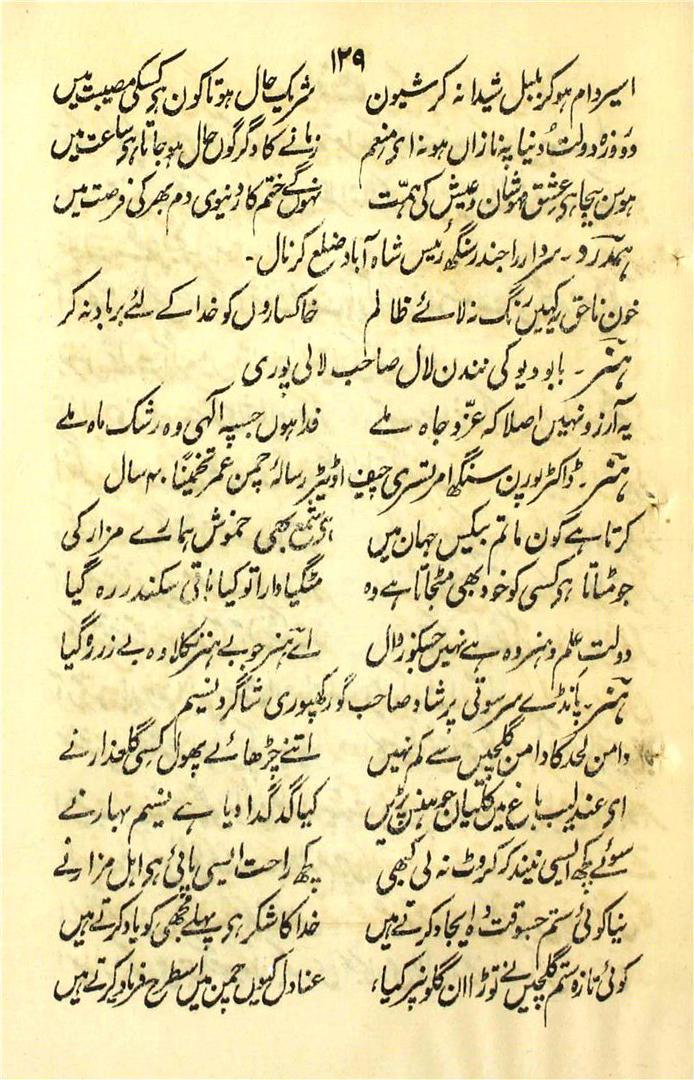 ۱۲۹
اسیر دام ہو کر بلبل شیدا نہ کر شیون شریک حال ہوتا کون ہی کسکی مصیبت میں
دو روزہ دولت دنیا پہ نازاں ہو نہ ای منعم زمانے کا دگرگوں حال ہو جاتا ہی ساعت میں
ہوس بیجا ہی عشق مہوشان و عیش کی ہمت نہوں گے ختم کار دنیوی دم بھر کی فرصت میں
ہمدرد۔ سردار راجندر سنگھ رئیس شاہ آباد ضلع کرنال۔
خون ناحق یہ کہیں رنگ نہ لائے ظالم خاکساروں کو خدا کے لئے برباد نہ کر
ہنر۔ بابو دیو کی نندن لال صاحب لالی پوری
یہ آرزو نہیں اصلا کہ عز و جاہ ملے فدا ہوں جسپہ الٰہی وہ رشک ماہ ملے
ہنر۔ ڈاکٹر پورن سنگھ امرتسری چیف اڈیٹر رسالۂ چمن عمر تخمیناً ۴۰ سال
کرتا ہے کون ماتم بیکس جہان میں ہی شمع بھی خموش ہمارے مزار کی
جو مٹاتا ہی کسی کو خود بھی مٹجاتا ہے وہ مٹگیا دارا تو کیا باقی سکندر رہ گیا
دولت علم و ہنر وہ ہے نہیں جسکو زوال اے ہنر جو بے ہنر نکلا وہ بے زر رہ گیا
ہنر۔ پانڈے سرسوتی پرشاد صاحب گورکھپوری شاگرد نسیم
دامن لحد کا دامن گلچیں سے کم نہیں اتنے چڑھائے پھول کسی گلعذار نے
ای عندلیب باغ میں کلیاں جو ہنس پڑیں کیا گدگدا دیا ہے نسیم بہار نے
سوئے کچھ ایسی نیند کہ کروٹ نہ لی کبھی کچھ راحت ایسی پائی ہی اہل مزار نے
نیا کوئی ستم جسوقت وہ ایجاد کرتے ہیں خدا کا شکر ہی پہلے مجھی کو یاد کرتے ہیں
کوئی تازہ ستم گلچیں نے توڑا ان گلونپر کیا، عنادل کیوں چمن میں اسطرح فریاد کرتے ہیں